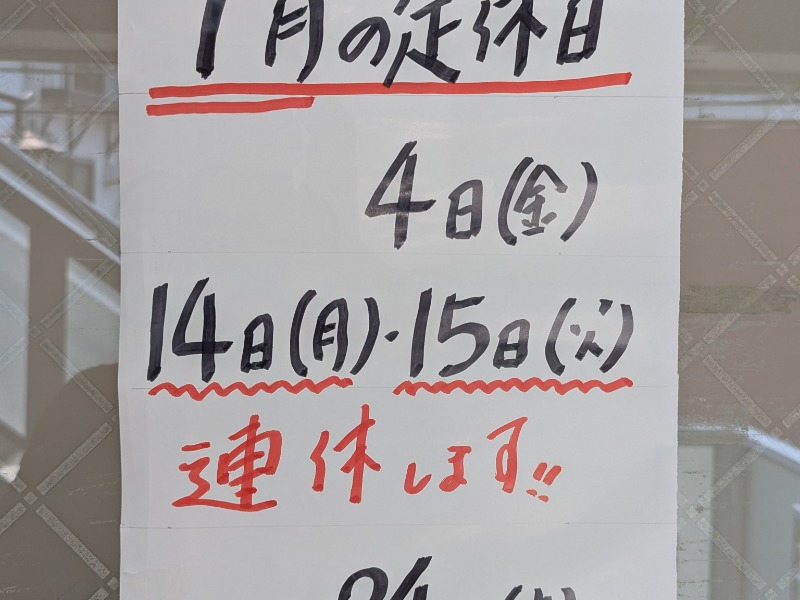 7月の定休日
4日(金)
14日(月)・15日(火)
連休します!!